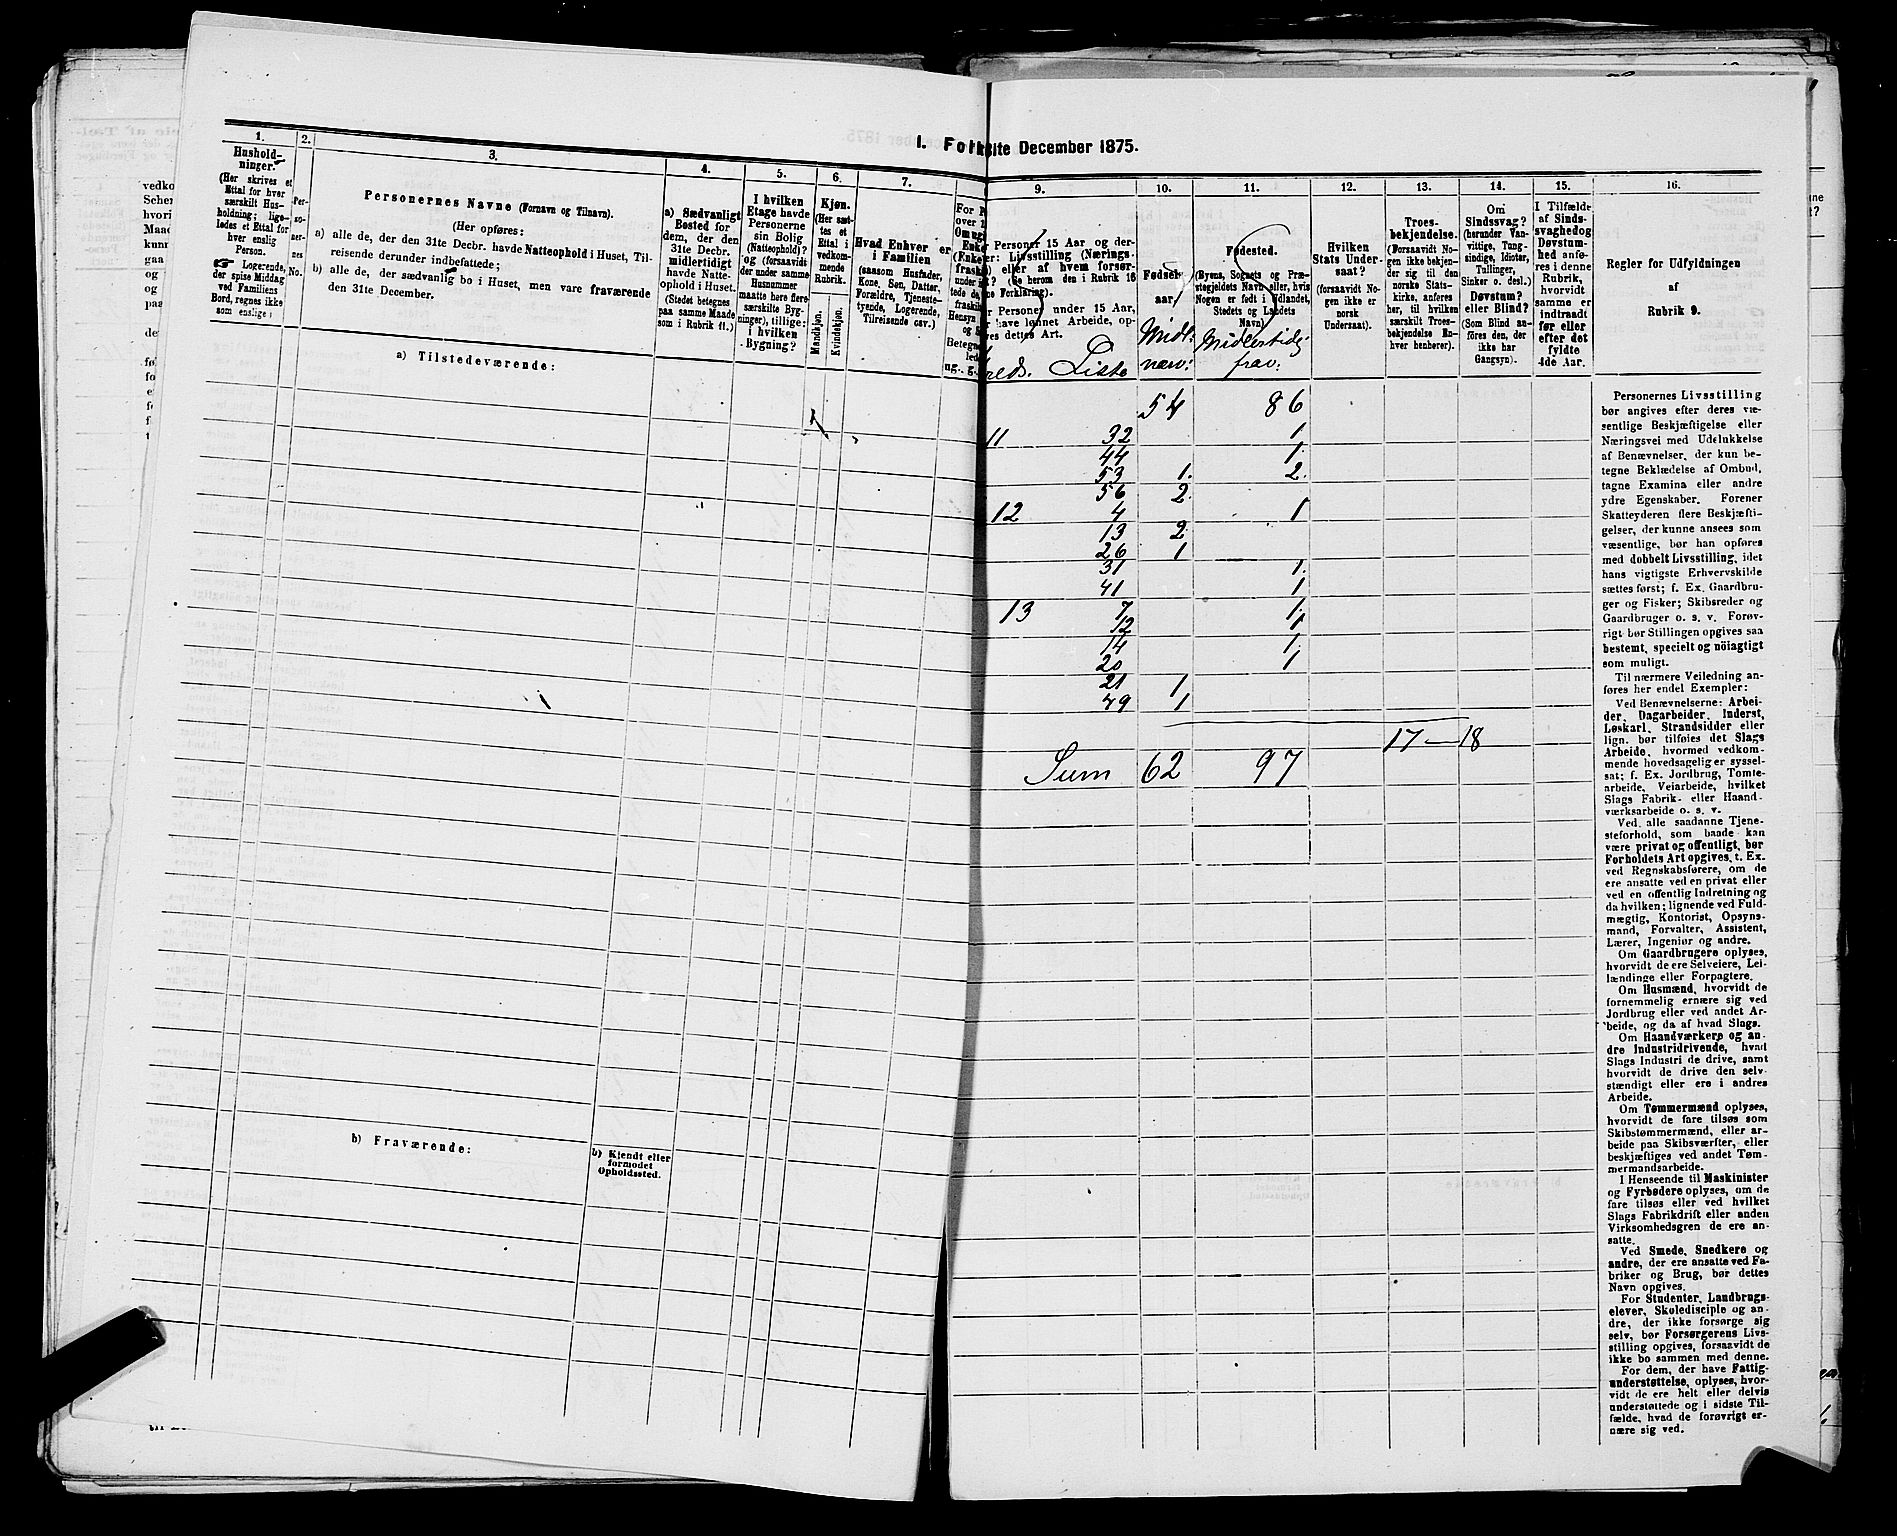 I. Folk
ite December 1875.
1.
Hushold-
ninger.
(Her skrives et
Ettal for hver
særskilt Hus-
holdning; lige-
ledes et Ettal for
hver enslig
Person.
Logerende,
der spise Middag
ved Familiens
Bord, regnes ikke
som enslige)
2.
Per-
so-
ner-
nes
No.
3.
Personernes Navne (Fornavn og Tilnavn).
(Her opføres:
a) alle de, der den 31te Decbr. havde Natteophold i Huset, Til-
reisende derunder indbefattede;
b) alle de, der sædvanlig bo i Huset, men vare fraværende
den 31te December.
4.
a) Sædvanligt
Bosted for
dem, der den
31te Decbr.
midlertidigt
havde Natte-
ophold i Huset.
(Stedet betegnes
paa samme Maade
som i Rubrik 11.)
5.
I hvilken
Etage havde
Personerne
sin Bolig
(Natteophold)?
og (forsaavidt
der under samme
Husnummer
maatte høre flere
særskilte Byg-
ninger), tillige:
i hvilken
Bygning?
6.
Kjøn.
(Her sæt-
tes et
Ettal i
vedkom-
mende
Rubrik.
Mandkjøn.
Kvindekjøn.
7.
Hvad Enhver er
i Familien
(saasom Husfader,
Kone, Søn, Datter,
Forældre, Tjeneste-
tyende, Logerende,
Tilreisende osv.)
For P
over 1
Omug
Enke
(Enke
fraski
under i
tede de,
fraskil
Hensyn
og S
Betegn
lede
ug., g.
a) Tilstedeværende:
b) Fraværende:
b) Kjendt eller
formodet
Opholdssted.
9.
Personer 15 Aar og der-
er: Livsstilling (Nærings-
) eller af hvem forsør-
(Se herom den i Rubrik 16
ne Forklaring).
r Personer under 15 Aar,
have lønnet Arbeide, op-
res dettes Art.
10.
Fødsels-
aar.
11.
Fødested.
(Byens, Sognets og Præ-
stegjeldets Navn eller, hvis
Nogen er født i Udlandet,
Stedets og Landets
Navn)
12.
Hvilken
Stats Under-
saat?
(forsaavidt No-
gen ikke er
norsk
Undersaat).
13.
Troes-
bekjendelse.
(Forsaavidt No-
gen ikke bekjen-
der sig til den
norske Stats-
kirke, anføres
her, til hvilken
særskilt Troes-
bekjendelse En-
hver henhører).
14.
Om
Sindssvag?
(herunder Van-
vittige, Tung-
sindige, Idioter,
Tullinger,
Sinker o. desl.)
Døvstum?
eller Blind?
(Som Blind an-
føres den, der
ikke har
Gangsyn).
15.
I Tilfælde
af Sinds-
svaghed og
Døvstum-
hed anfø-
res i denne
Rubrik,
hvorvidt
samme er
indtraadt
før eller
efter det
fyldte
4de Aar.
16.
Regler for Udfyldningen
af
Rubrik 9.
reds. Liste
Midl: nærv:
Midlertidig frav:
54 86
11 32 1
44 1
53 1 2
56 2
12 4 1
13 2
26 1
31 1
41 1
13 7 1
12 1
14 1
20 1
21 1
49 1
17 — 18
Sum 62 97
Personernes Livsstilling
bør angives efter deres væ-
sentlige Beskjæftigelse eller
Næringsvei med Udelukkelse
af Benævnelser, der kun be-
tegne Beklædelse af Ombud,
tagne Examina eller andre
ydre Egenskaber. Forener
Skatteyderen flere Beskjæfti-
gelser, der kunne ansees som
væsentlige, bør han opføres
med dobbelt Livsstilling, idet
hans vigtigste Erhvervskilde
sættes først; f. Ex. Gaardbru-
ger og Fisker; Skibsreder og
Gaardbruger o. s. v. Forøv-
rigt bør Stillingen opgives saa
bestemt, specielt og nöiagtigt
som muligt.
Til nærmere Veiledning an-
føres her endel Exempler:
Ved Benævnelserne: Arbei-
der, Dagarbeider, Inderst,
Løskarl, Strandsidder eller
lign. bør tilføies det Slags
Arbeide, hvormed vedkom-
mende hovedsagelig er syssel-
sat; f. Ex. Jordbrug, Tomte-
arbeide, Veiarbeide, hvilket
Slags Fabrik- eller Haand-
værksarbeide o. s. v.
Ved alle saadanne Tjene-
steforhold, som baade kan
være privat og offentligt, bør
Forholdets Art opgives, t. Ex.
ved Regnskabsførere, om de
ere ansatte ved en privat eller
ved en offentlig Indretning og
da hvilken; lignende ved Fuld-
mægtig, Kontorist, Opsyns-
mand, Forvalter, Assistent,
Lærer, Ingeniør og andre.
Om Gaardbrugere oplyses,
hvorvidt de ere Selveiere, Lei-
lændinge eller Forpagtere.
Om Husmænd, hvorvidt de
fornemmelig ernære sig ved
Jordbrug eller ved andet Ar-
beide, og da af hvad Slags.
Om Haandværkere og an-
dre Industridrivende, hvad
Slags Industri de drive, samt
hvorvidt de drive den selv-
stændigt eller ere i andres
Arbeide.
Om Tømmermænd oplyses,
hvorvidt de fare tilsøs som
Skibstømmermænd, eller ar-
beide paa Skibsværfter, eller
beskjæftiges ved andet Tøm-
mermandsarbeide.
I Henseende til Maskinister
og Fyrbødere oplyses, om de
fare tilsøs eller ved hvilket
Slags Fabrikdrift eller anden
Virksomhedsgren de ere an-
satte.
Ved Smede, Snedkere og
andre, der ere ansatte ved Fa-
briker og Brug, bør dettes
Navn opgives.
For Studenter, Landbrugs-
elever, Skoledisciple og an-
dre, der ikke forsørge sig
selv, bør Forsørgerens Livs-
stilling opgives, forsaavidt de
ikke bo sammen med denne.
For dem, der have Fattig-
understøttelse, oplyses, hvor-
vidt de ere helt eller delvis
understøttede og i sidste Til-
fælde, hvad de forøvrigt er-
nære sig ved.